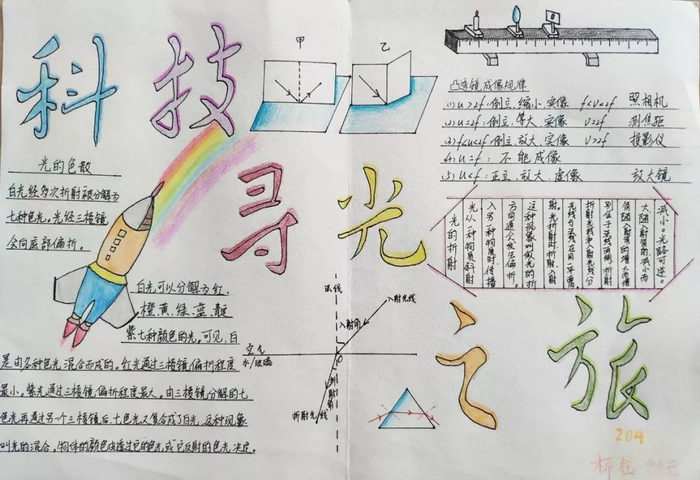 科技
寻光
之旅
甲
乙
光的色散
白光经多次折射被分解为
七种色光。光经三棱镜
会向底部偏折。
白光可以分解为红、
橙、黄、绿、蓝、靛
紫七种颜色的光。可见,白
是由各种色光混合而成的。红光通过三棱镜偏折程度
最小。紫光通过三棱镜偏折程度最大。由三棱镜分解的七
色光再通过另一个三棱镜后,七色光又复合成了白光,这种现象
叫光的混合。物体的颜色由透过它的色光或它反射的色光决定。
凸透镜成像规律
(1) u>2f: 倒立、缩小、实像 f<v<2f 照相机
(2) u=2f: 倒立、等大、实像 v=2f 测焦距
(3) f<u<2f: 倒立、放大、实像 v>2f 投影仪
(4) u=f: 不能成像
(5) u<f: 正立、放大、虚像 放大镜
光的折射
光从一种物质斜射
入另一种物质时,传播
方向通常发生偏折。
这种现象叫做光的折
减小。光路可逆。
法线
入射光线
入射角
空气
水/玻璃
折射角
折射光线
204